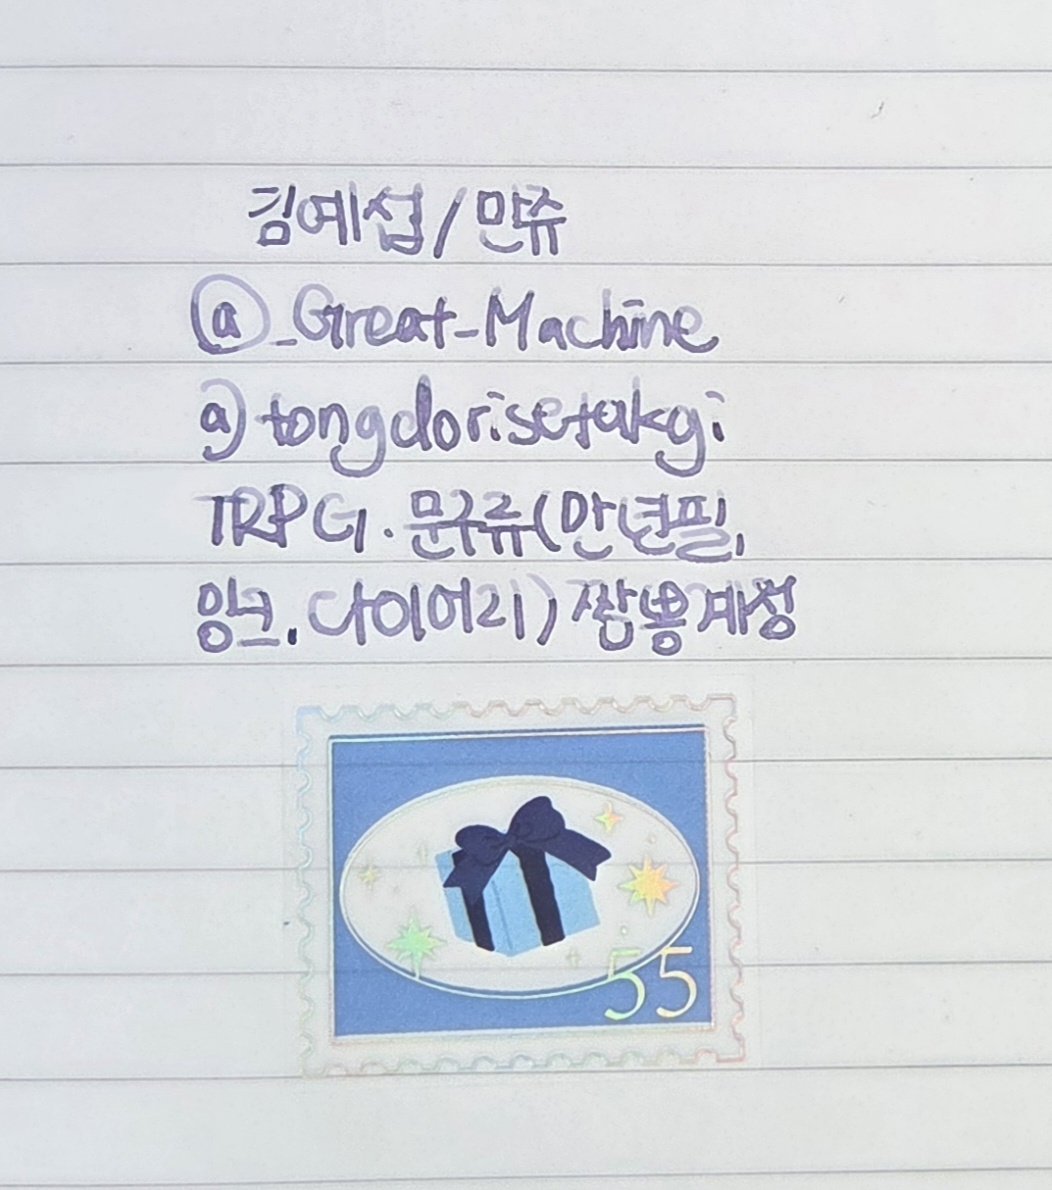 김예섭/만쥬
@_Great_Machine
@tongdorisetakgi
TRPG.문구류(만년필,
잉크,다이어리)짬뽕계정
55